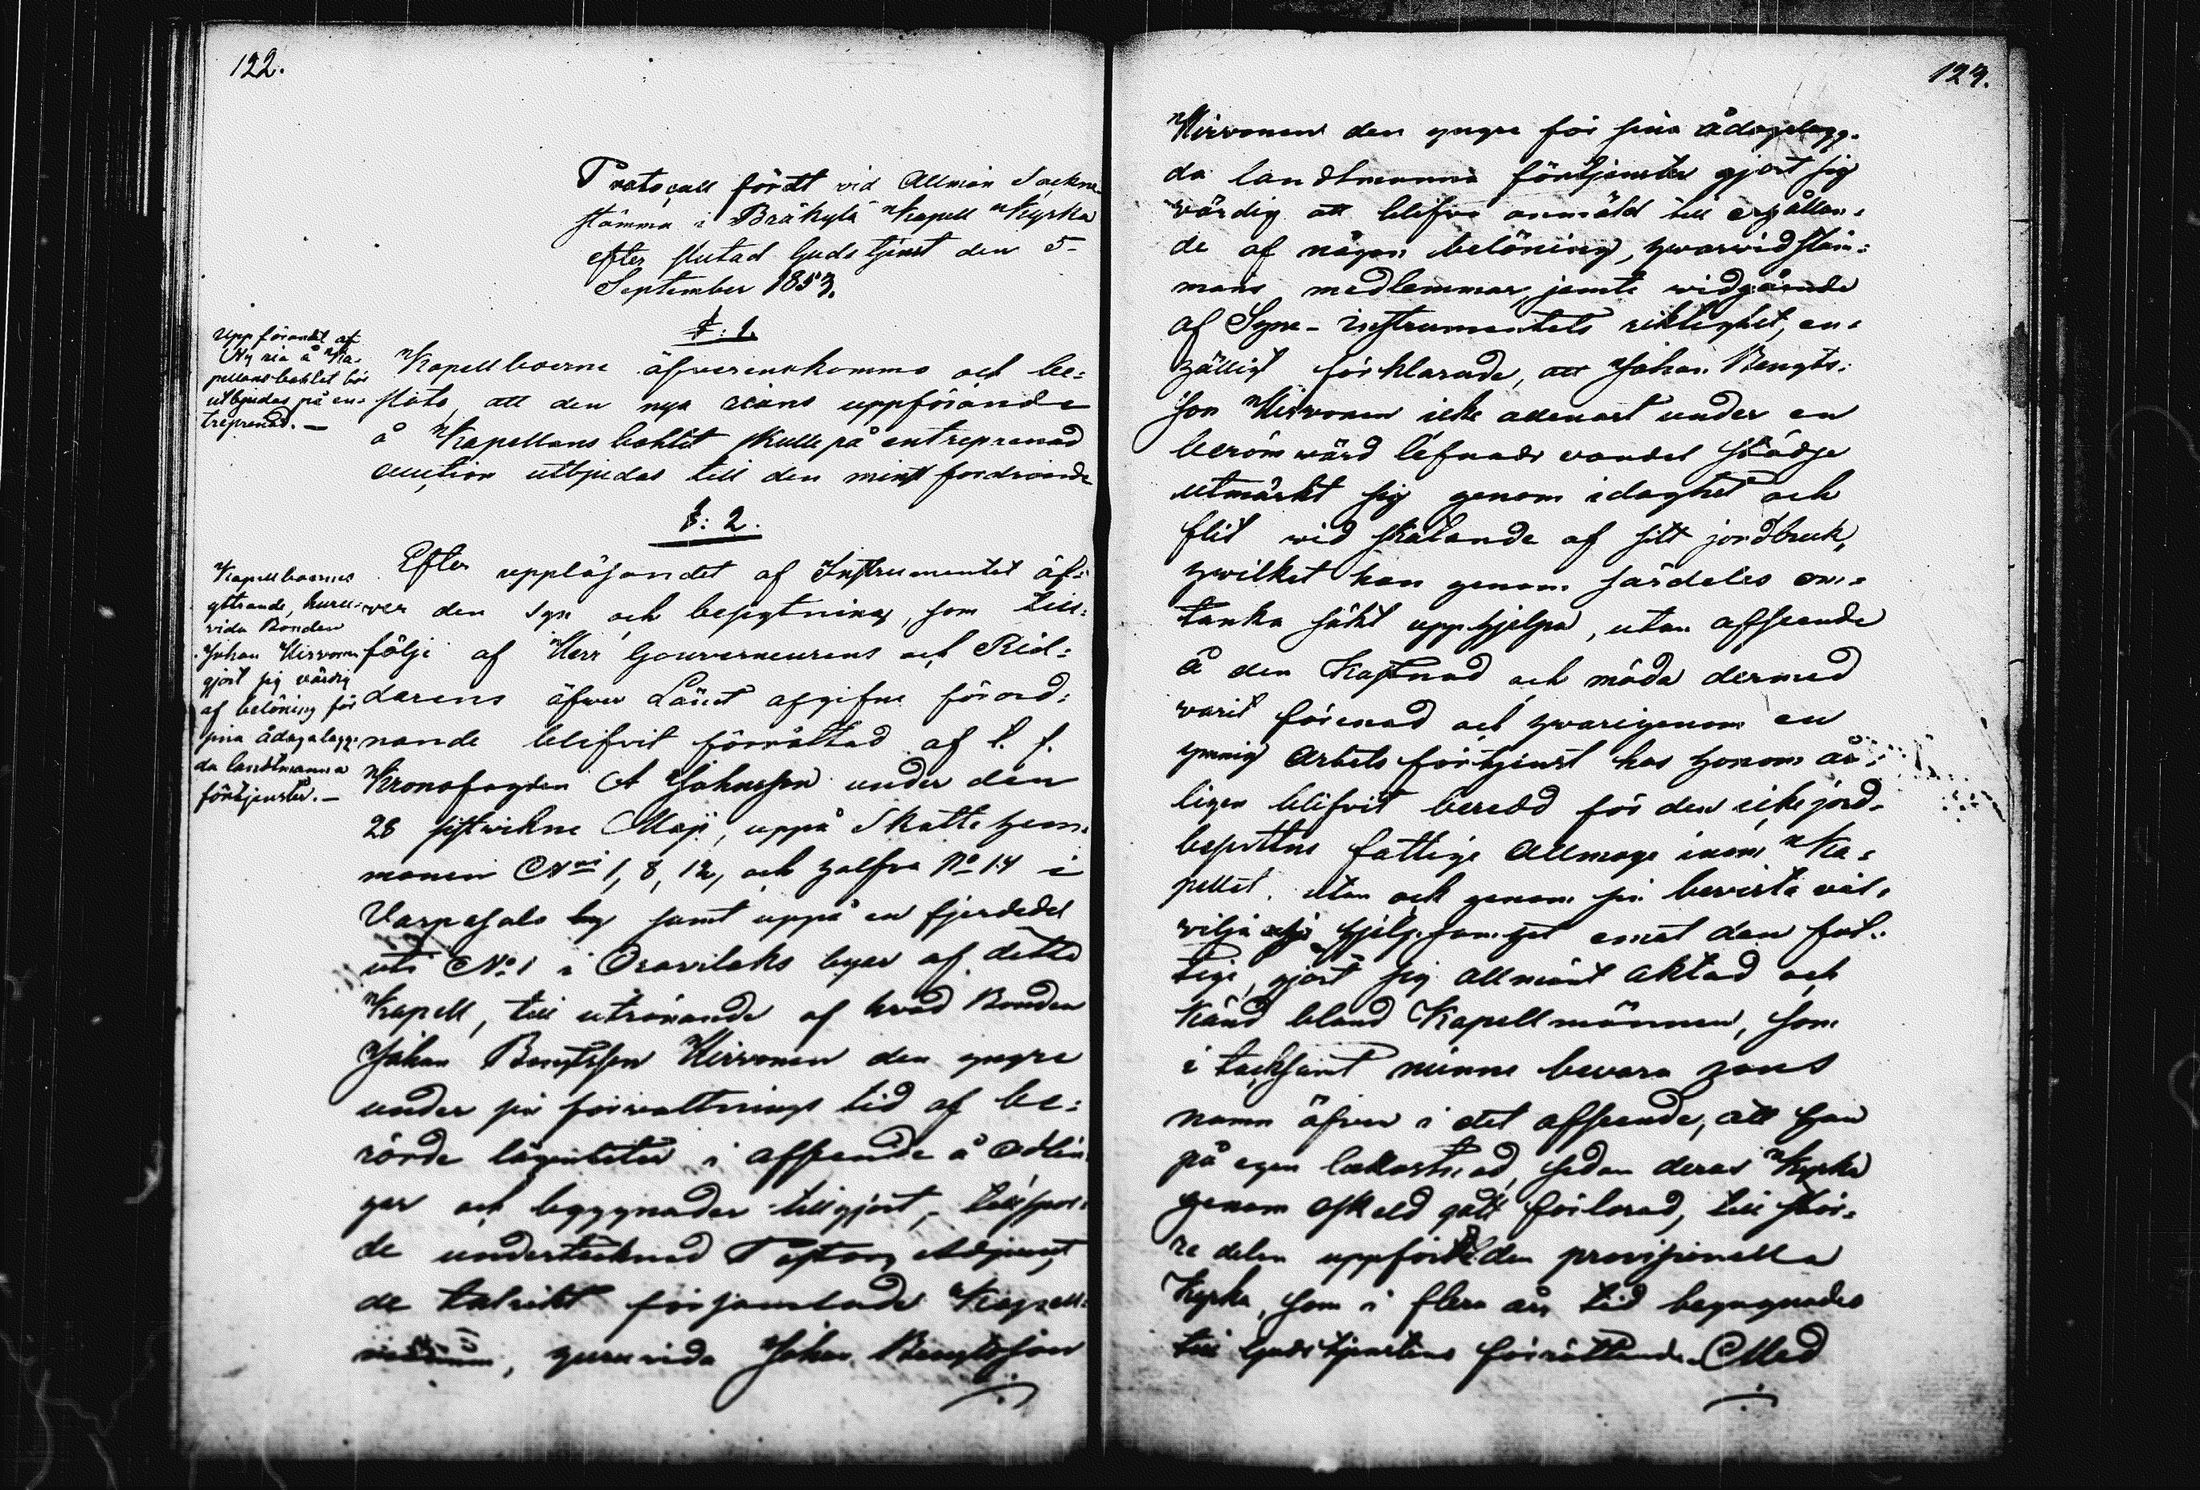 122.
Protocall fördt vid Allmän Sockne-
stämma i Bräkylä Kapell Kyrka
efter slutad Gudstjenst den 5
September 1853.
§: 1.
Uppförandet af
Ny ria å Ka-
pellansbohlet bör
utbjudas på en-
treprenad. —
Kapellboerne öfverenskommo och be-
slöto, att den nya rians uppförande
å Kapellans bohlet skulle på entreprenad
auction utbjudas till den minst fordrande
§: 2.
Kapellboernes
yttrande, huru-
vida Bonden
Johan Hirvonen
gjort sig värdig
af belöning för
sina ådagalagg-
da landtmanna
förtjenster. —
Efter uppläsandet af Instrumentet öf-
wer den syn och besigtning, som till-
följe af Herr Gouverneurens och Rid-
darens öfwer Länet afgifne förord-
nande blifvit förrättad af t. f.
Kronofogden A Johnsson under den
28 sistwikne Maji, uppå Skatte hem-
manen N:ris 1, 8, 12, och halfva No 14 i
Varpasalo by samt uppå en fjerdedel
uti No 1 i Oravilaks byar af detta
Kapell, till utrönande af hvad Bonden
Johan Bengtsson Hirvonen den yngre
under sin förvaltnings tid af be-
rörde lägenheter i afseende å odlin-
gar och byggnader tillgjort, - tillspor-
de undertecknad Pastors Adjunct,
de talrikt församlade Kapell-
, huruvida Johan Bengtsson
123.
Hirvonen den yngre för sina ådagalagg-
da landtmanna förtjenster gjort sig
värdig att blifva anmäld till erhållan-
de af någon belöning, hvarvid stäm-
mans medlemmar, jemte widgående
af Syne-instrumentets riktighet, en-
hälligt förklarade, att Johan Bengts-
son Hirvonen icke allenast under en
berömwärd lefnads vandel städse
utmärkt sig genom idoghet och
flit wid skötande af sitt jordbruk,
hwilket han genom särdeles om-
tanka sökt upphjelpa, utan afseende
å den kostnad och möda dermed
varit förenad och hvarigenom en
ymnig arbetsförtjenst hos honom år-
ligen blifvit beredd för den icke jord-
besittne fattige Allmoge inom Ka-
pellet. utan ock genom sin beviste väl-
vilja och hjelpsamhet emot den fat-
tige, gjort sig allmänt aktad och
känd bland Kapellmännen, som
i tacksamt minne bevara hans
namn äfven i det afseende, att han
på egen bekostnad, sedan deras Kyrka
genom åskeld gått förlorad, till stör-
re delen uppfört den provisionella
Kyrka, som i flera års tid begagnades
till Gudstjenstens förrättande. Med